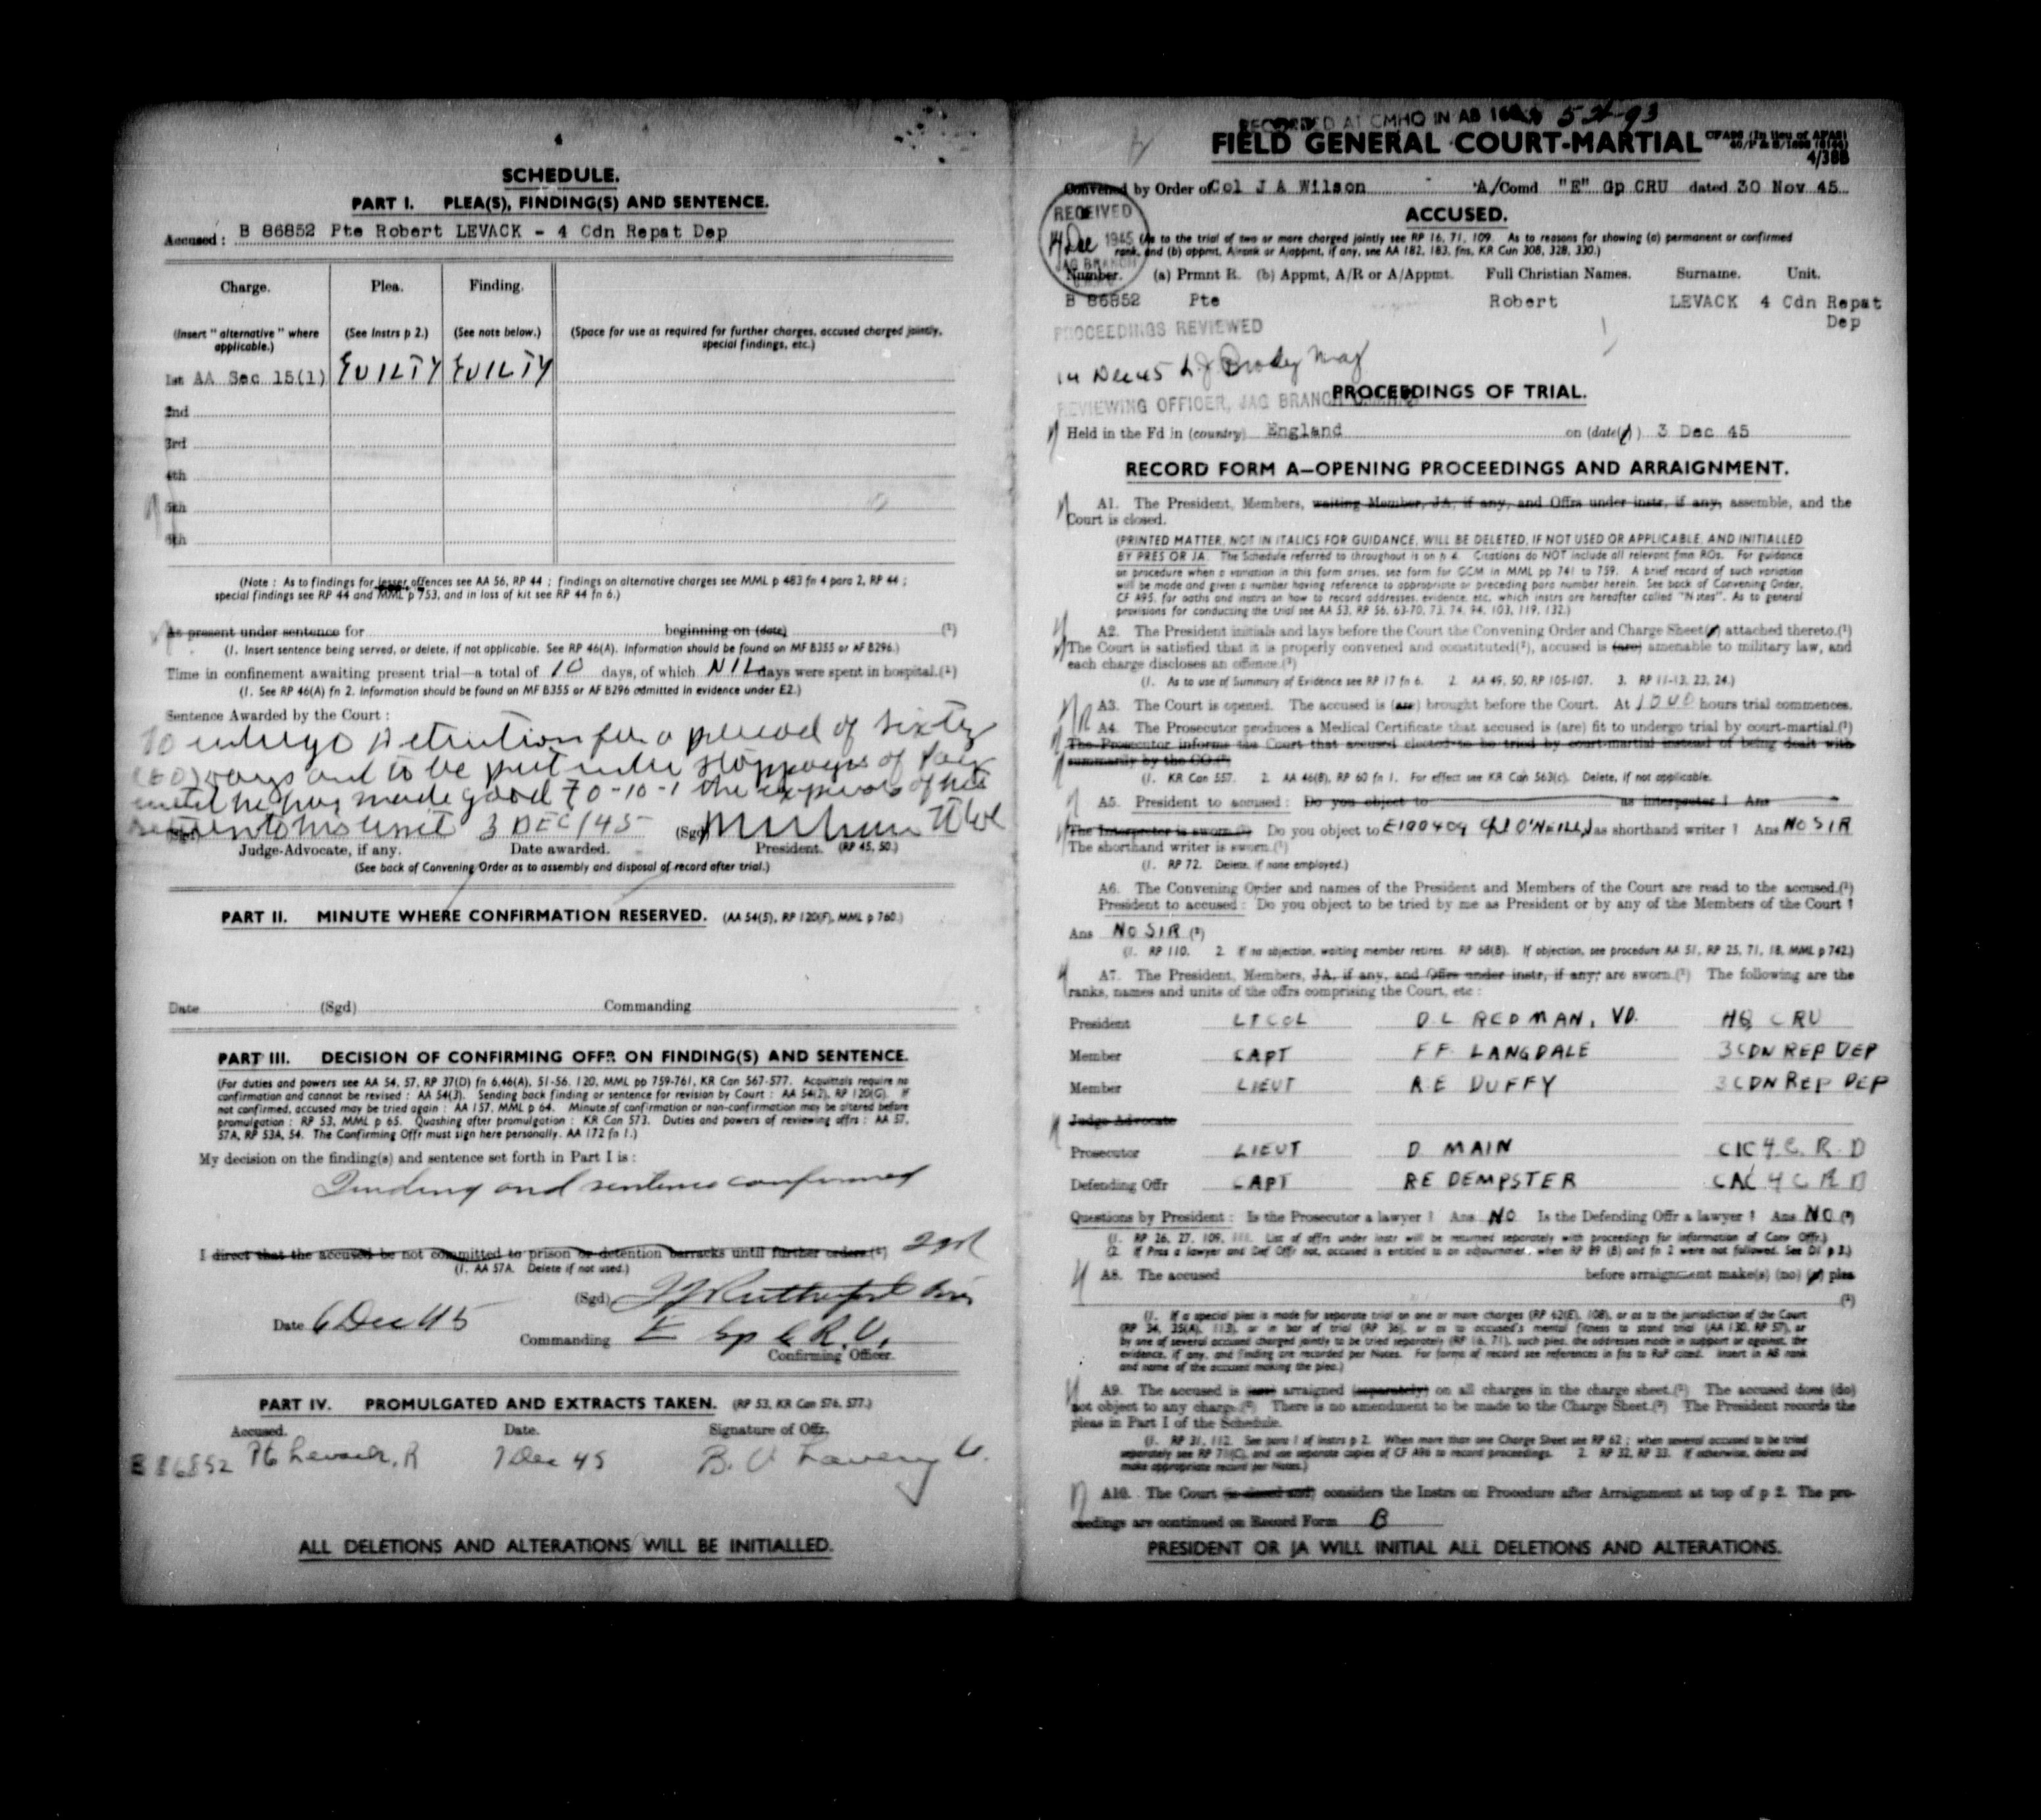 4
SCHEDULE.
PART I. PLEA(S), FINDING(S) AND SENTENCE.
Accused: B 86852 Pte Robert LEVACK - 4 Cdn Repat Dep
Charge. Plea. Finding.
(Insert "alternative" where applicable.) (See Instrs p 2.) (See note below.) (Space for use as required for further charges, accused charged jointly, special findings, etc.)
1st AA Sec 15(1) GUILTY GUILTY
2nd
3rd
4th
5th
6th
(Note: As to findings for lesser offences see AA 56, RP 44; findings on alternative charges see MML p 483 fn 4 para 2, RP 44;
special findings see RP 44 and MML p 753, and in loss of kit see RP 44 fn 6.)
At present under sentence for beginning on (date) (1)
(1. Insert sentence being served, or delete, if not applicable. See RP 46(A). Information should be found on MF B355 or AF B296.)
Time in confinement awaiting present trial—a total of 10 days, of which NIL days were spent in hospital.(1)
(1. See RP 46(A) fn 2. Information should be found on MF B355 or AF B296 admitted in evidence under E2.)
Sentence Awarded by the Court:
To undergo detention for a period of sixty
(60) days and to be put under stoppages of pay
until he has made good £0-10-1 the expenses of his
return to his unit 3 DEC/45 (Sgd)
Judge-Advocate, if any. Date awarded. President. (RP 45, 50.)
(See back of Convening Order as to assembly and disposal of record after trial.)
PART II. MINUTE WHERE CONFIRMATION RESERVED. (AA 54(5), RP 120(F), MML p 760.)
Date (Sgd) Commanding
PART III. DECISION OF CONFIRMING OFFR ON FINDING(S) AND SENTENCE.
(For duties and powers see AA 54, 57, RP 37(D) fn 6,46(A), 51-56, 120, MML pp 759-761, KR Can 567-577. Acquittals require no
confirmation and cannot be revised: AA 54(3). Sending back finding or sentence for revision by Court: AA 54(2), RP 120(G). If
not confirmed, accused may be tried again: AA 157, MML p 64. Minute of confirmation or non-confirmation may be altered before
promulgation: RP 53, MML p 65. Quashing after promulgation: KR Can 573. Duties and powers of reviewing offrs: AA 57,
57A, RP 53A, 54. The Confirming Offr must sign here personally. AA 172 fn 1.)
My decision on the finding(s) and sentence set forth in Part I is:
Finding and sentence confirmed
I direct that the accused be not committed to prison or detention barracks until further orders.(1)
(1. AA 57A. Delete if not used.)
(Sgd) Rutherford Brig
Date 6 Dec 45 Commanding E Gp C.R.U.
Confirming Officer.
PART IV. PROMULGATED AND EXTRACTS TAKEN. (RP 53, KR Can 576, 577.)
Accused. Date. Signature of Offr.
B 86852 Pte Levack, R 7 Dec 45
ALL DELETIONS AND ALTERATIONS WILL BE INITIALLED.
RECORDED AT CMHQ IN AB
FIELD GENERAL COURT-MARTIAL
4/388
Convened by Order of Col J A Wilson A/Comd "E" Gp CRU dated 30 Nov 45
ACCUSED.
RECEIVED
14 Dec 1945
JAG BRANCH
(As to the trial of two or more charged jointly see RP 16, 71, 109. As to reasons for showing (a) permanent or confirmed
rank, and (b) appmt, A/rank or A/appmt, if any, see AA 182, 183, fns, KR Can 308, 328, 330.)
Number. (a) Prmnt R. (b) Appmt, A/R or A/Appmt. Full Christian Names. Surname. Unit.
B 86852 Pte Robert LEVACK 4 Cdn Repat
Dep
PROCEEDINGS REVIEWED
14 Dec 45
REVIEWING OFFICER, JAG BRANCH
PROCEEDINGS OF TRIAL.
Held in the Fd in (country) England on (date(s)) 3 Dec 45
RECORD FORM A—OPENING PROCEEDINGS AND ARRAIGNMENT.
A1. The President, Members, waiting Member, JA, if any, and Offrs under instr, if any, assemble, and the
Court is closed.
(PRINTED MATTER, NOT IN ITALICS FOR GUIDANCE, WILL BE DELETED, IF NOT USED OR APPLICABLE, AND INITIALLED
BY PRES OR JA. The Schedule referred to throughout is on p 4. Citations do NOT include all relevant fmn ROs. For guidance
on procedure when a variation in this form arises, see form for GCM in MML pp 741 to 759. A brief record of such variation
will be made and given a number having reference to appropriate or preceding para number herein. See back of Convening Order,
CF A95, for oaths and instrs on how to record addresses, evidence, etc, which instrs are hereafter called "Notes". As to general
provisions for conducting the trial see AA 53, RP 56, 63-70, 73, 74, 94, 103, 119, 132.)
A2. The President initials and lays before the Court the Convening Order and Charge Sheet(s) attached thereto.(1)
The Court is satisfied that it is properly convened and constituted(2), accused is (are) amenable to military law, and
each charge discloses an offence.(3)
(1. As to use of Summary of Evidence see RP 17 fn 6. 2. AA 49, 50, RP 105-107. 3. RP 11-13, 23, 24.)
A3. The Court is opened. The accused is (are) brought before the Court. At 1000 hours trial commences.
A4. The Prosecutor produces a Medical Certificate that accused is (are) fit to undergo trial by court-martial.(1)
The Prosecutor informs the Court that accused elected to be tried by court-martial instead of being dealt with
summarily by the CO.(2)
(1. KR Can 557. 2. AA 46(8), RP 60 fn 1. For effect see KR Can 563(c). Delete, if not applicable.
A5. President to accused: Do you object to as interpreter? Ans
The Interpreter is sworn.(1) Do you object to E100409 O'NEILL, J as shorthand writer? Ans NO SIR
The shorthand writer is sworn.(1)
(1. RP 72. Delete, if none employed.)
A6. The Convening Order and names of the President and Members of the Court are read to the accused.(1)
President to accused: Do you object to be tried by me as President or by any of the Members of the Court?
Ans NO SIR (2)
(1. RP 110. 2. If no objection, waiting member retires. RP 68(B). If objection, see procedure AA 51, RP 25, 71, 18, MML p 742.)
A7. The President, Members, JA, if any, and Offrs under instr, if any, are sworn.(1) The following are the
ranks, names and units of the offrs comprising the Court, etc:
President LTCOL D L REDMAN, VD. HQ CRU
Member CAPT F F LANGDALE 3 CDN REP DEP
Member LIEUT R E DUFFY 3 CDN REP DEP
Judge-Advocate
Prosecutor LIEUT D MAIN CIC 4 C.R.D
Defending Offr CAPT R E DEMPSTER CAC 4 C R D
Questions by President: Is the Prosecutor a lawyer? Ans NO Is the Defending Offr a lawyer? Ans NO (2)
(1. RP 26, 27, 109, 111. List of offrs under instr will be returned separately with proceedings for information of Conv Offr.)
(2. If Pros a lawyer and Def Offr not, accused is entitled to an adjournment, when RP 89 (B) and fn 2 were not followed. See D1 p 3.)
A8. The accused before arraignment make(s) (no) (a) plea
(1)
(1. If a special plea is made for separate trial on one or more charges (RP 62(E), 108), or as to the jurisdiction of the Court
(RP 34, 35(A), 113), or in bar of trial (RP 36), or as to accused's mental fitness to stand trial (AA 130, RP 57), or
by one of several accused charged jointly to be tried separately (RP 16, 71), such plea, the addresses made in support or against, the
evidence, if any, and finding are recorded per Notes. For forms of record see references in fns to RsP cited. Insert in A8 rank
and name of the accused making the plea.)
A9. The accused is (are) arraigned (separately) on all charges in the charge sheet.(1) The accused does (do)
not object to any charge.(2) There is no amendment to be made to the Charge Sheet.(2) The President records the
pleas in Part I of the Schedule.
(1. RP 31, 112. See para 1 of Instrs p 2. When more than one Charge Sheet see RP 62; when several accused to be tried
separately see RP 71(C), and use separate copies of CF A96 to record proceedings. 2. RP 32, RP 33. If otherwise, delete and
make appropriate record per Notes.)
A10. The Court (is closed and) considers the Instrs on Procedure after Arraignment at top of p 2. The pro-
ceedings are continued on Record Form B
PRESIDENT OR JA WILL INITIAL ALL DELETIONS AND ALTERATIONS.